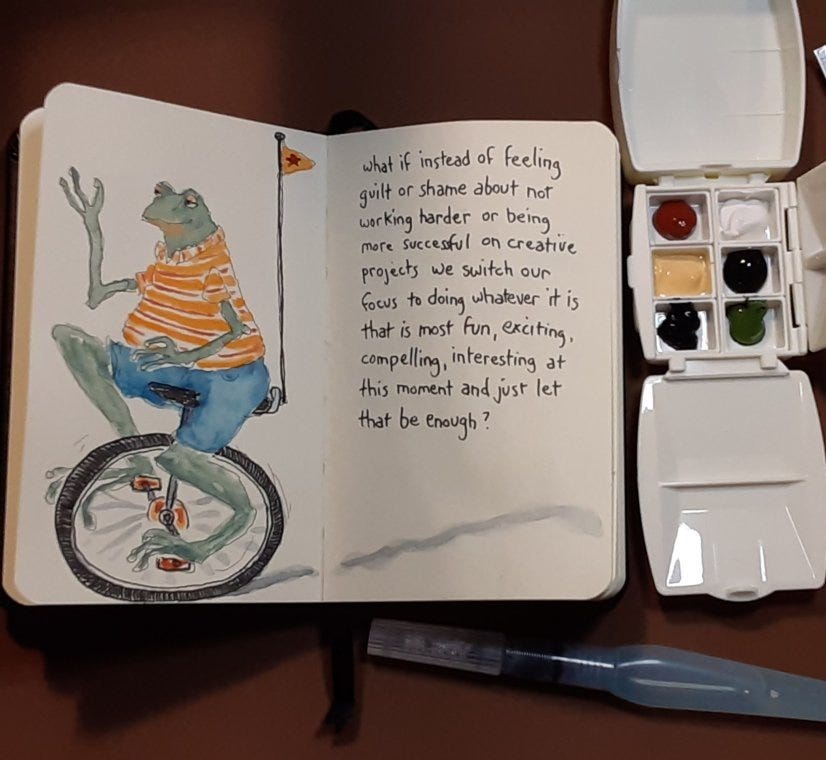 what if instead of feeling
guilt or shame about not
working harder or being
more successful on creative
projects we switch our
focus to doing whatever it is
that is most fun, exciting,
compelling, interesting at
this moment and just let
that be enough?